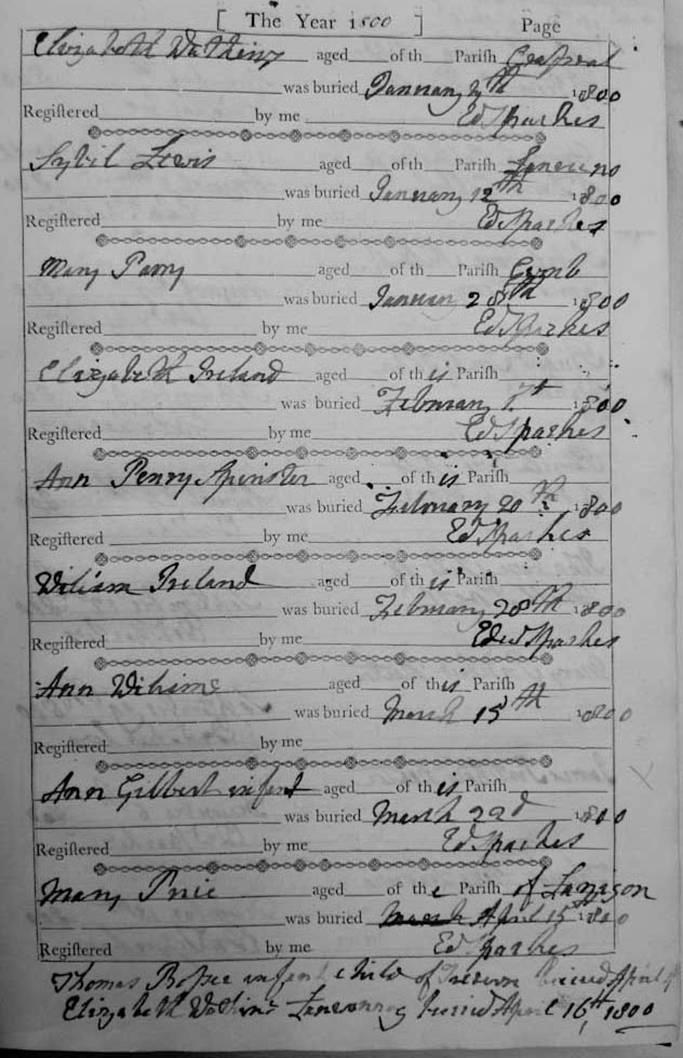 [ The Year 1800 ] Page
Elizabeth Watkins aged of th Pariſh
was buried January th 1800
Regiſtered by me Ed Sparkes
Sybil Lewis aged of th Pariſh
was buried January 12th 1800
Regiſtered by me Ed Sparkes
Mary Parry aged of th Pariſh
was buried January 28th 1800
Regiſtered by me Ed Sparkes
Elizabeth Ireland aged of this Pariſh
was buried February 1800
Regiſtered by me Ed Sparkes
Ann Penry Spinster aged of this Pariſh
was buried February 20th 1800
Regiſtered by me Ed Sparkes
William Ireland aged of this Pariſh
was buried February 28th 1800
Regiſtered by me Edwd Sparkes
Ann aged of this Pariſh
was buried March 15th 1800
Regiſtered by me
Ann Gilbert infant aged of this Pariſh
was buried March 22d 1800
Regiſtered by me Ed Sparkes
Mary Price aged of the Pariſh of
was buried March April 15th 1800
Regiſtered by me Ed Sparkes
Thomas infant child of buried April
Elizabeth Watkins buried April 16th 1800